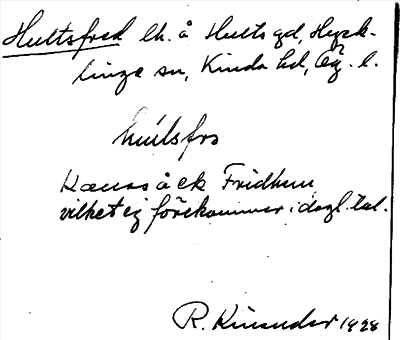 Hultsfred lh. å Hults gd, Hyck-
linge sn, Kinda hd, Ög. l.
Kallas å ek Fridhem,
vilket ej förekommer i dagl. tal.
R. Kinander 1928